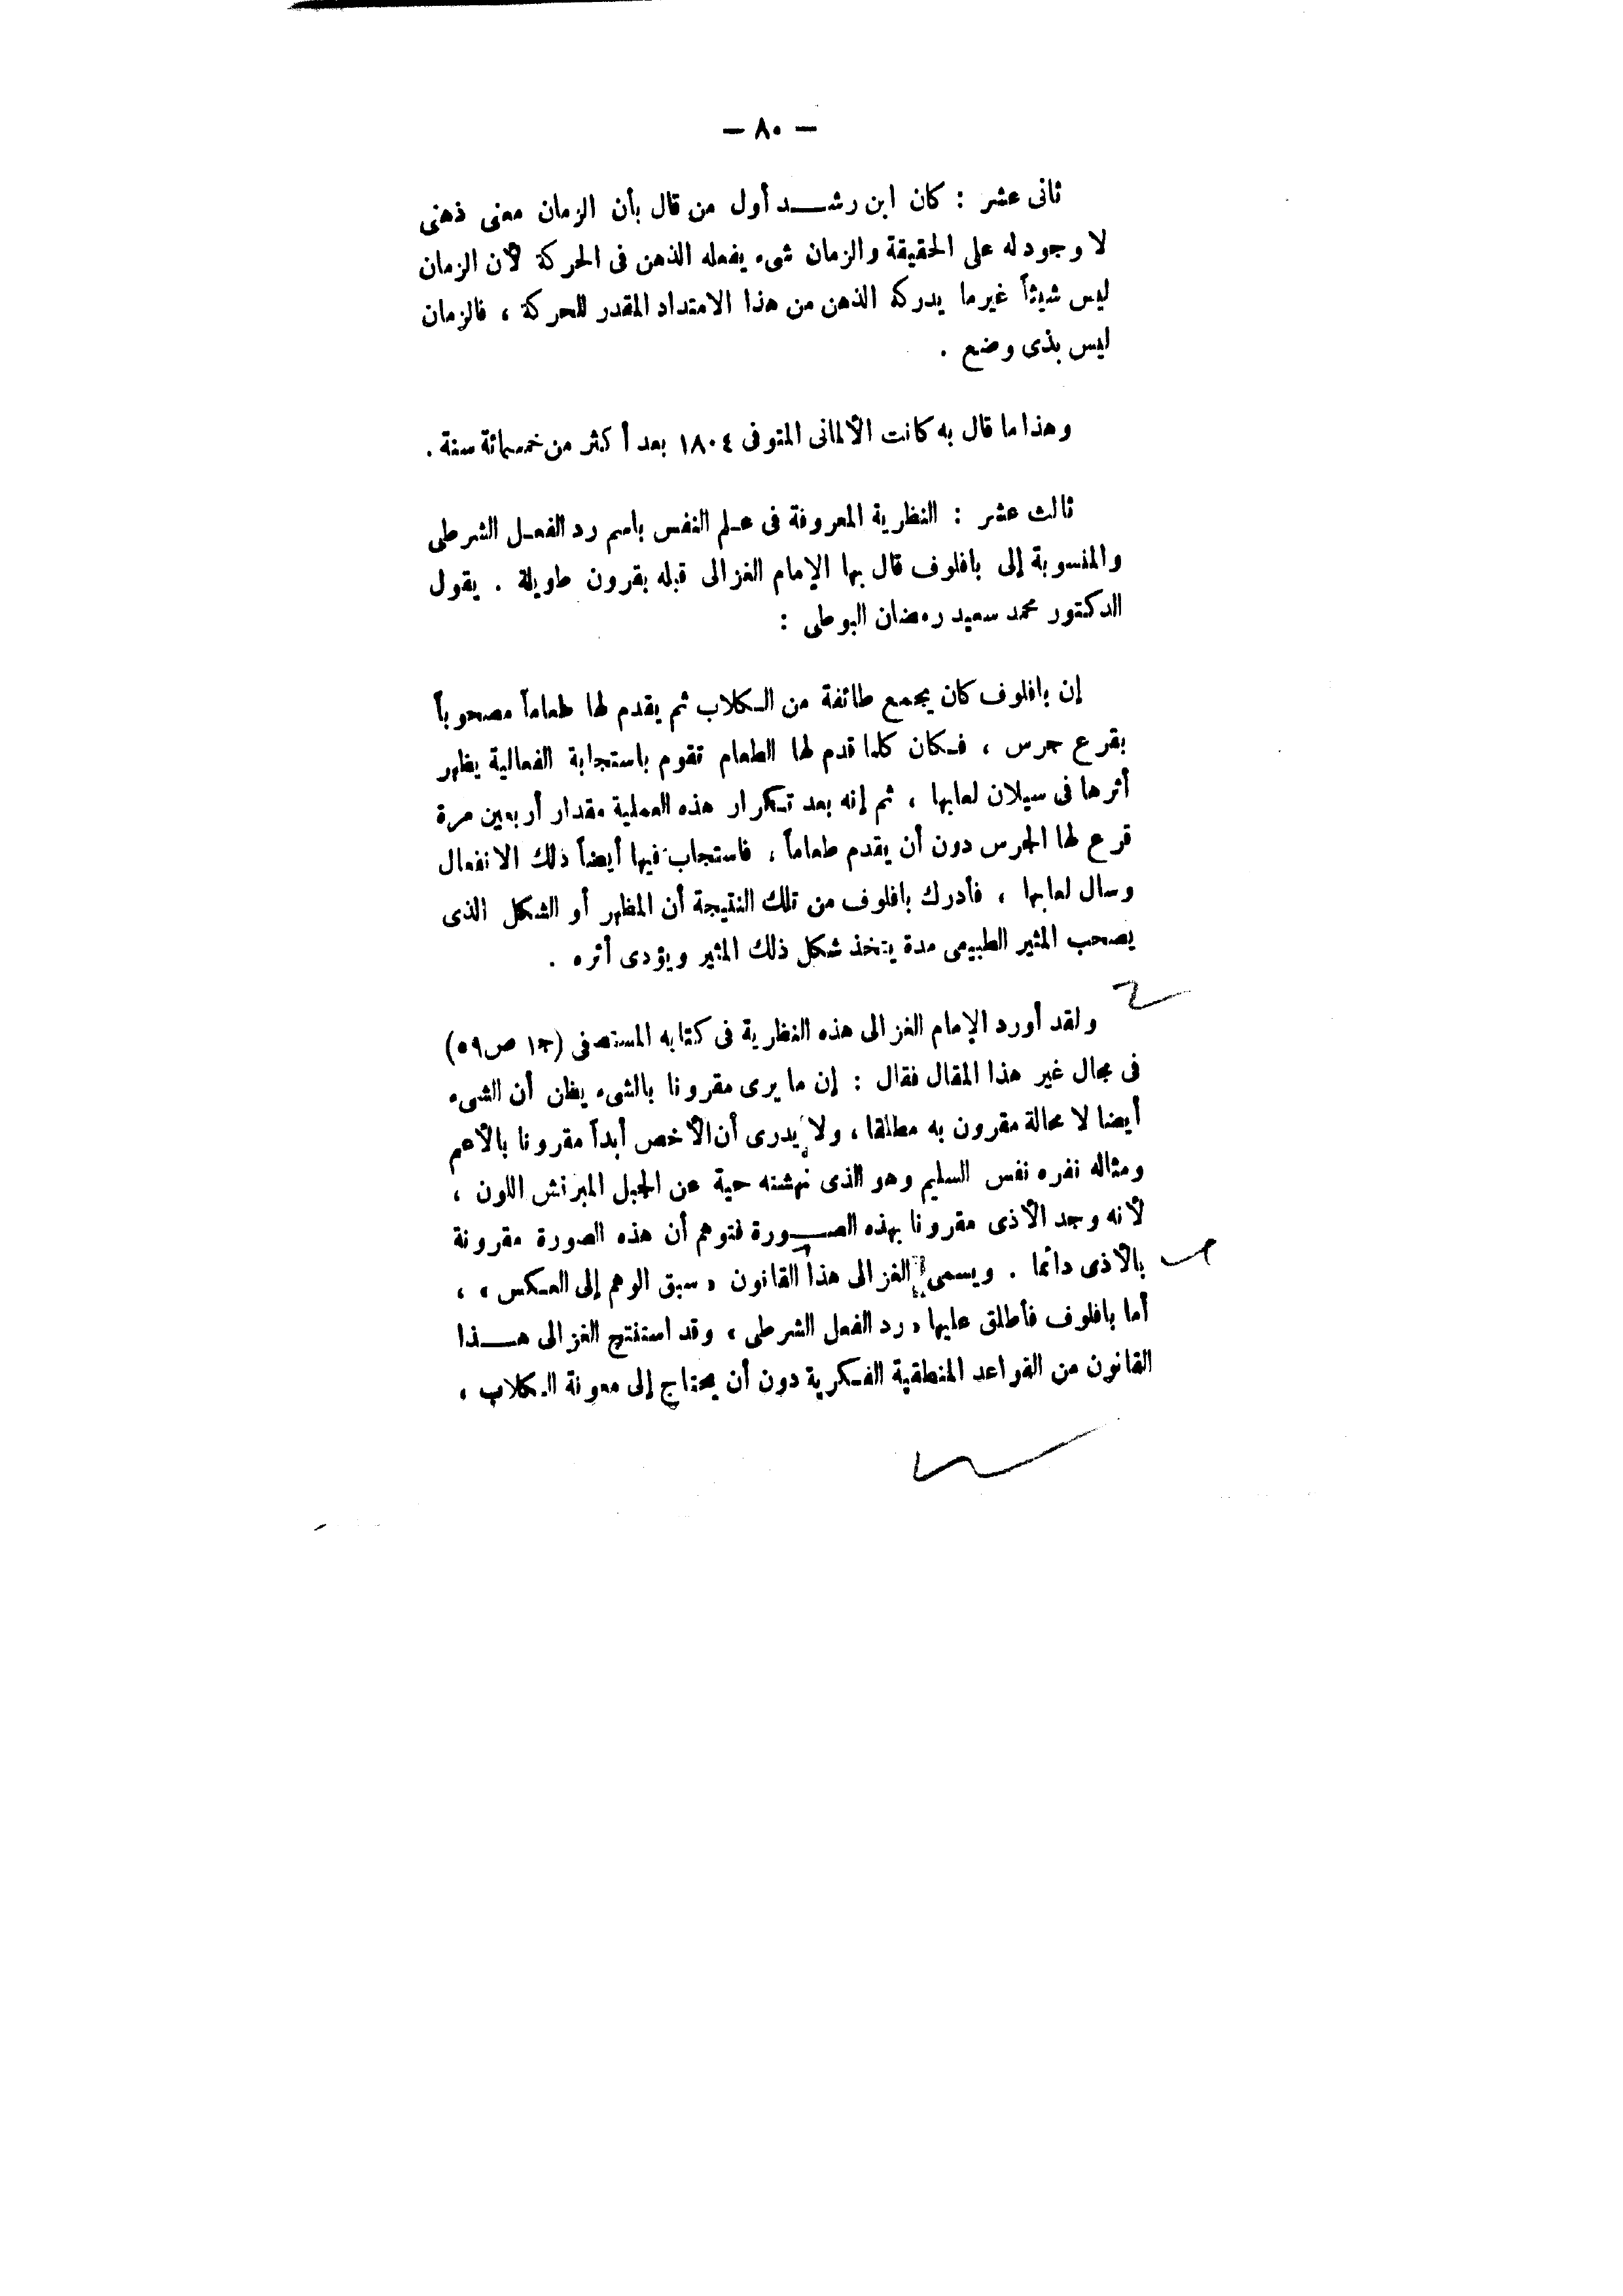 — ٨٠ —
ثانى عشر : كان ابن رشد أول من قال بأن الزمان معنى ذهنى
لا وجود له على الحقيقة والزمان شىء يفعله الذهن فى الحركة لأن الزمان
ليس شيئاً غير ما يدركه الذهن من هذا الامتداد المقدر للحركة ، فالزمان
ليس بذى وضع .
وهذا ما قال به كانت الألمانى المتوفى ١٨٠٤ بعد أكثر من خمسمائة سنة .
ثالث عشر : النظرية المعروفة فى علم النفس باسم رد الفعل الشرطى
والمنسوبة إلى بافلوف قال بها الإمام الغزالى قبله بقرون طويلة . يقول
الدكتور محمد سعيد رمضان البوطى :
إن بافلوف كان يجمع طائفة من الكلاب ثم يقدم لها طعاماً مصحوباً
بقرع جرس ، فكان كلما قدم لها الطعام تقوم باستجابة الفعالية يظهر
أثرها فى سيلان لعابها ، ثم إنه بعد تكرار هذه العملية مقدار أربعين مرة
قرع لها الجرس دون أن يقدم طعاماً ، فاستجاب فيها أيضاً ذلك الانفعال
وسال لعابها ، فأدرك بافلوف من تلك النتيجة أن المظهر أو الشكل الذى
يصحب المثير الطبيعى مدة يتخذ شكل ذلك المثير ويؤدى أثره .
ولقد أورد الإمام الغزالى هذه النظرية فى كتابه المستصفى (ج١ ص٥٩)
فى مجال غير هذا المقال فقال : إن ما يرى مقرونا بالشىء يظن أن الشىء
أيضا لا محالة مقرون به مطلقا ، ولا يدرى أن الأخص أبداً مقرونا بالأعم
ومثاله نفره نفس السليم وهو الذى نهشته حية عن الحبل المبرقش اللون ،
لأنه وجد الأذى مقرونا بهذه الصورة فتوهم أن هذه الصورة مقرونة
بالأذى دائما . ويسمى الغزالى هذا القانون « سبق الوهم إلى العكس » ،
أما بافلوف فأطلق عليها « رد الفعل الشرطى » وقد استنتج الغزالى هذا
القانون من القواعد المنطقية الفكرية دون أن يحتاج إلى معونة الكلاب ،